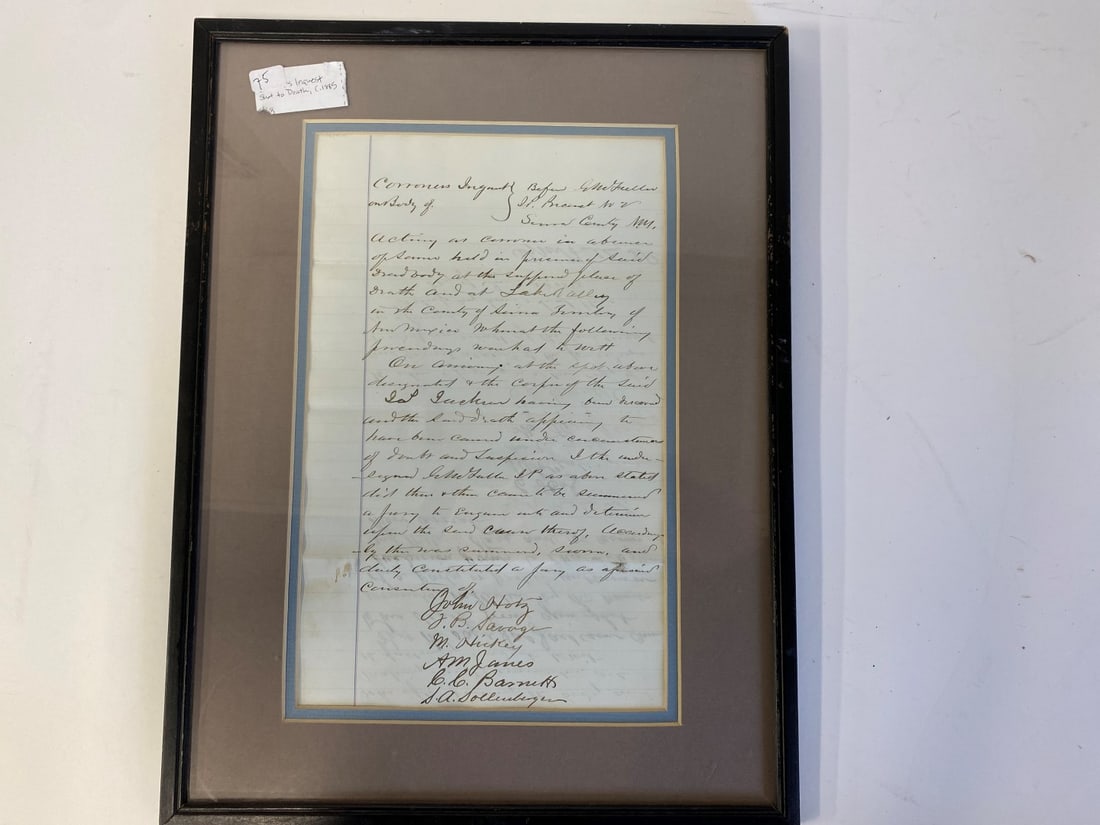 75 s Inquest
Shot to Death, C.1885
Corroners Inquest } Before G McFuller
on Body of. J.P. Precinct No 2
Sierra County NM.
Acting as Corroner in absence
of Same held in presence of Said
Dead body at the supposed place of
Death and at Lake Valley
in the County of Sierra Territory of
New Mexico Whereat the following
proceedings were had to Witt
On arriving at the spot above
designated & the Corpse of the Said
Jas Jackson having been discovered
and the Said Death appearing to
have been caused under circumstances
of doubt and Suspicion I the under-
-signed G McFuller J P as above stated
did then & there cause to be summoned
a Jury to Enquire into and determine
upon the said Cause thereof, According-
-by there was summoned, sworn, and
duly Constituted a Jury as aforesaid
Consisting of
John Hotz
J. B. Savage
M. Hickey
A M Janes
C. C. Barnett
S. A. Sollenberger